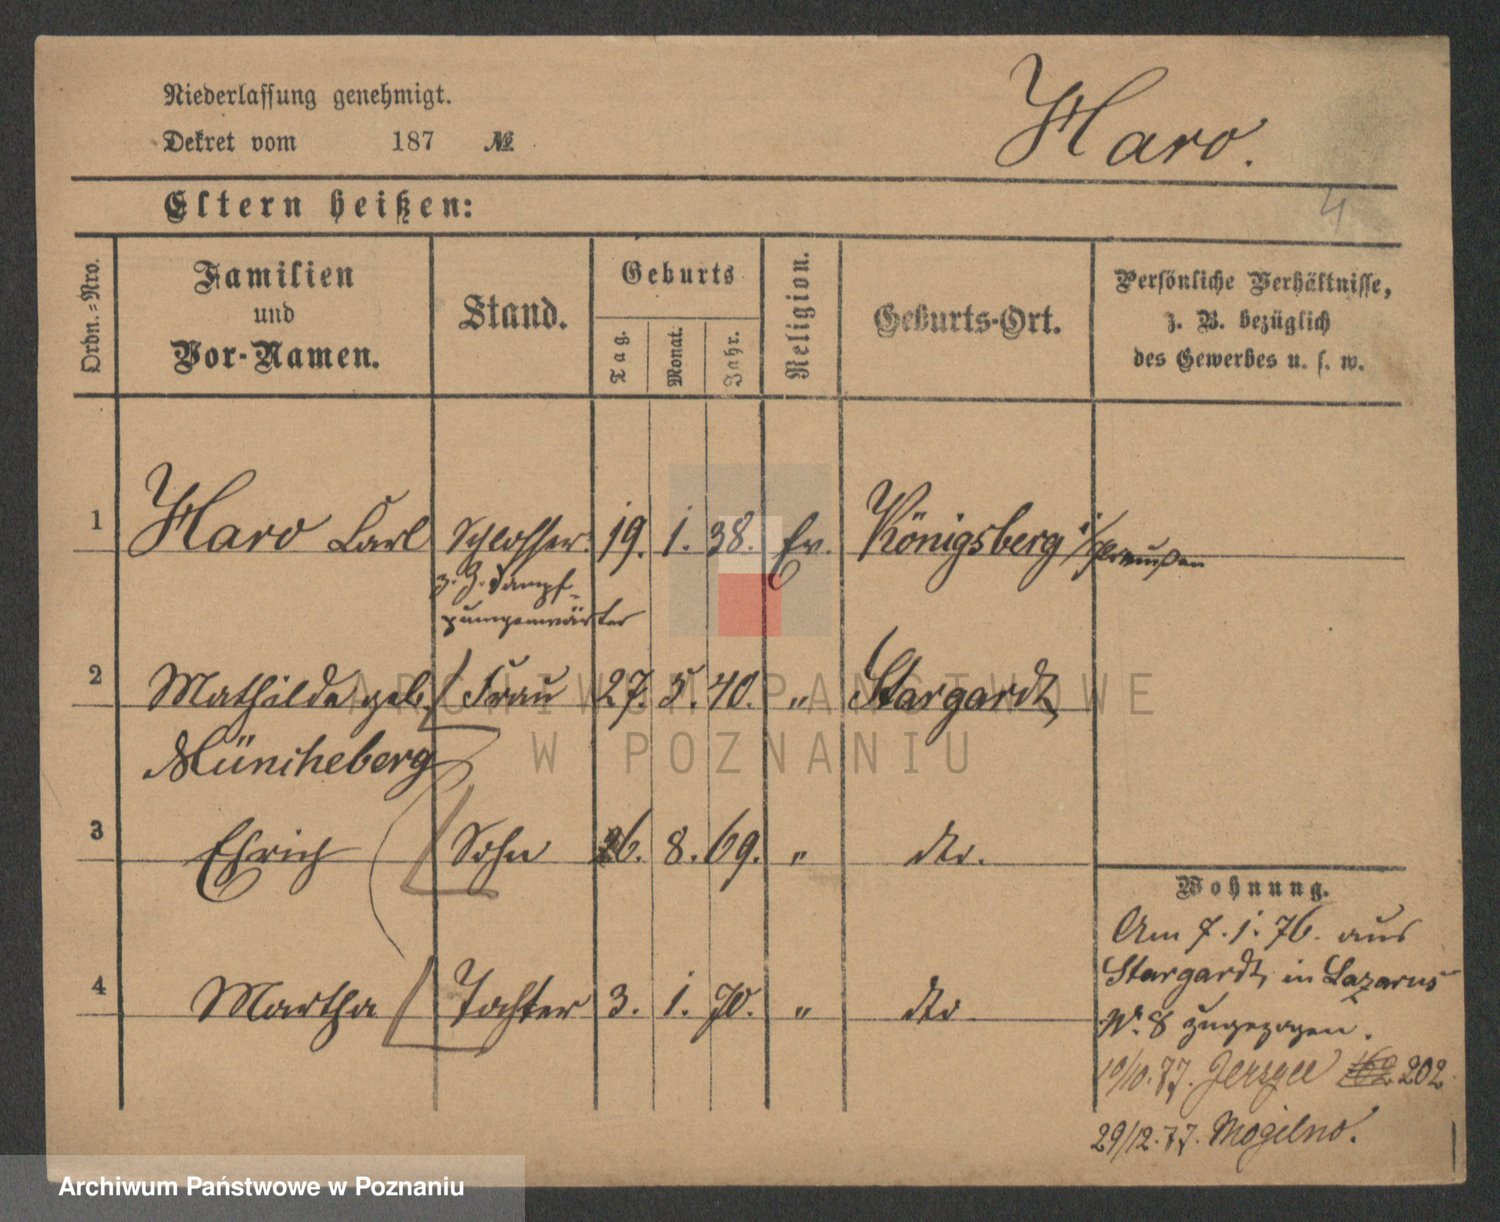 Niederlassung genehmigt.
Haro.
Dekret vom 187 №
4
Eltern heißen:
Ordn.-Nro.
Familien
und
Vor-Namen.
Stand.
Geburts
Tag.
Monat.
Jahr.
Religion.
Geburts-Ort.
Persönliche Verhältnisse,
z. B. bezüglich
des Gewerbes u. s. w.
1 Haro Carl Schlosser. 19. 1. 38. Ev. Königsberg i/Preußen
z. Z. Dampf-
pumpenwärter
2 Mathilde geb. Frau 27. 5. 40. " Stargardt
Müncheberg
3 Ehrich Sohn 26. 8. 69. " dto.
4 Martha Tochter 3. 1. 70. " dto
Wohnung.
Am 7. 1. 76. aus
Stargardt in Lazarus
Nr. 8 zugezogen.
10/10. 77. Jerzyce 202
29/12. 77. Mogilno.
ARCHIWUM PAŃSTWOWE
W POZNANIU
Archiwum Państwowe w Poznaniu